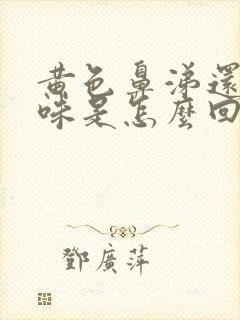 黃色鼻涕還
味是怎麼回
鄧廣萍